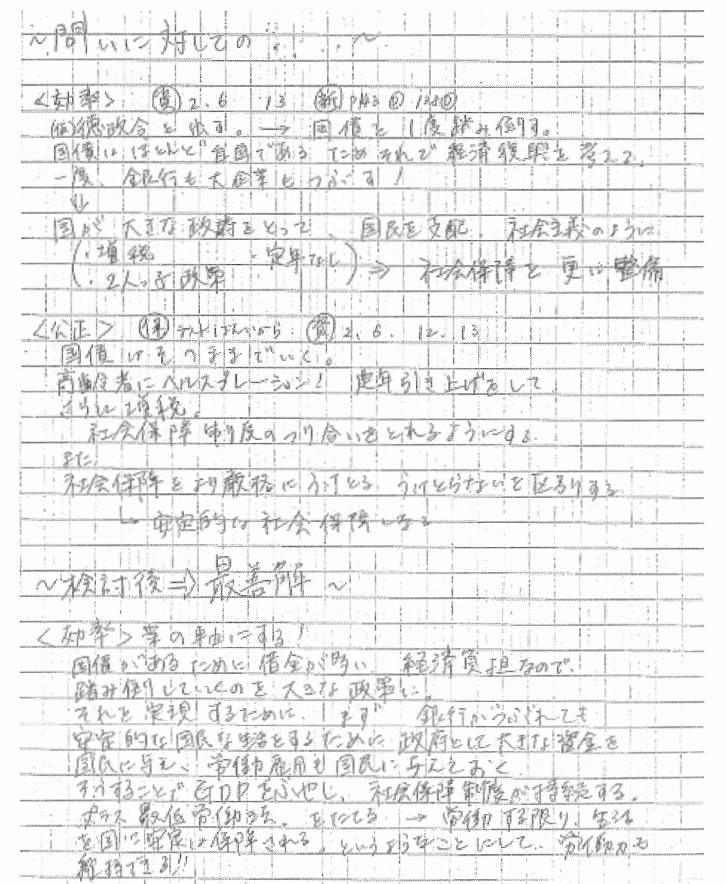 ～問いに対しての……～
<効率> 資 2.6 13
徳政令を出す。→ 国債を1度踏み倒す。
国債はほとんど自国であるためそれで経済復興を考える。
一度、銀行も大企業もつぶす！
↓
国が大きな政府をとって、国民を支配、社会主義のように
(・増税 ・定年なし
・2人っ子政策) ⇒ 社会保障を更に整備
<公正> 保 資 2. 6. 12. 13
国債はそのままでいく。
高齢者にヘルスプレーション！ 定年引き上げをして
さらに増税。
社会保障制度のつり合いをとれるようにする。
また、
社会保障をより厳格にうけとる、うけとらないを区切りする
↳ 安定的な社会保障になる
～検討後⇒最善解～
<効率>案の軸にする！
国債があるために借金が多い 経済負担なので、
踏み倒ししていくのを大きな政策に。
それを実現するために、まず 銀行がつぶれても
安定的な国民な生活をするために政府として大きな資金を
国民に与え、労働雇用も国民に与えておく
そうすることでGDPをふやし、社会保障制度が持続する。
プラス最低労働法、をたてる → 労働する限り、生活
を国に安定は保障される、というようなことにして、労働力も
維持できる!!